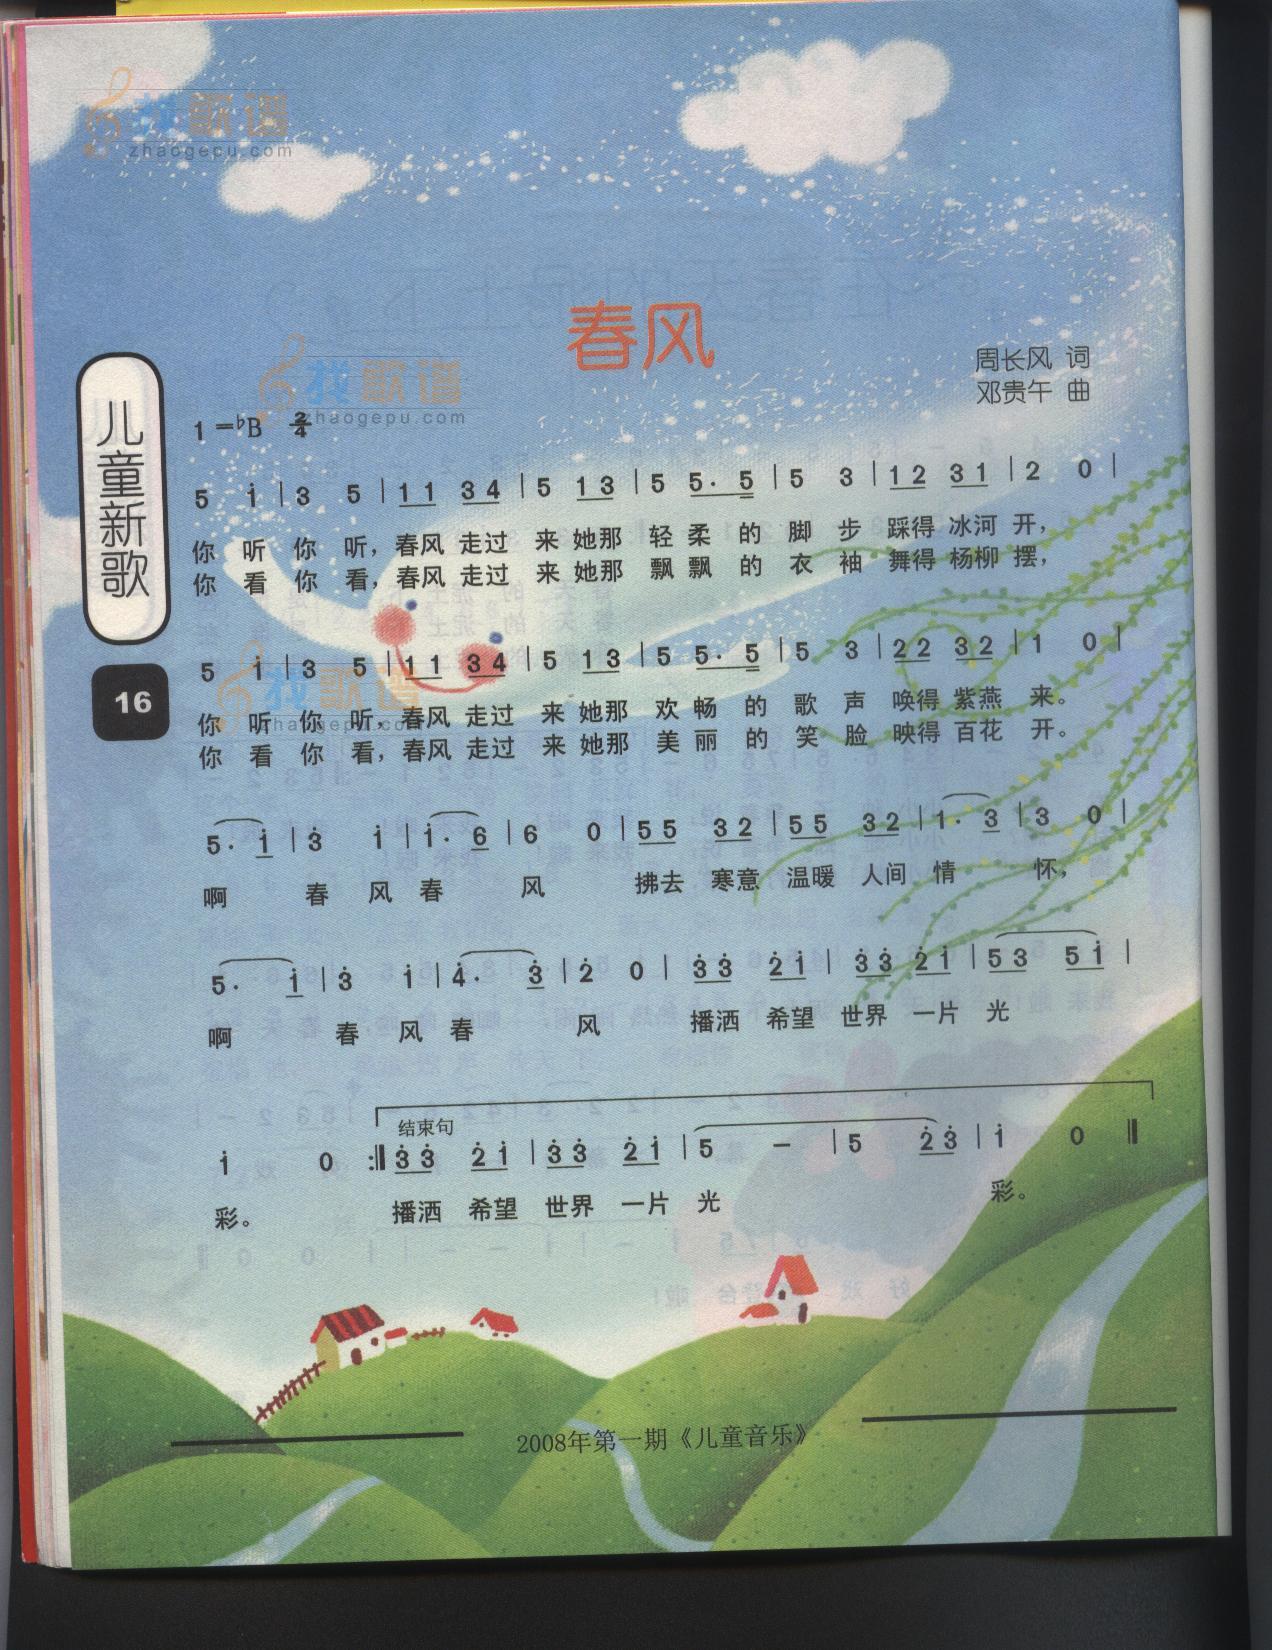 找歌谱
zhaogepu.com
春风
周长风 词
邓贵午 曲
找歌谱
zhaogepu.com
儿童新歌
16
1=♭B 2/4
5 i̇ | 3 5 | 1 1 3 4 | 5 1 3 | 5 5· 5 | 5 3 | 1 2 3 1 | 2 0 |
你 听 你 听，春风 走过 来 她那 轻 柔 的 脚 步 踩得 冰河 开，
你 看 你 看，春风 走过 来 她那 飘 飘 的 衣 袖 舞得 杨柳 摆，
5 i̇ | 3 5 | 1 1 3 4 | 5 1 3 | 5 5· 5 | 5 3 | 2 2 3 2 | 1 0 |
找歌谱
zhaogepu.com
你 听 你 听，春风 走过 来 她那 欢 畅 的 歌 声 唤得 紫燕 来。
你 看 你 看，春风 走过 来 她那 美 丽 的 笑 脸 映得 百花 开。
5· i̇ | 3̇ i̇ | i̇· 6 | 6 0 | 5 5 3 2 | 5 5 3 2 | 1· 3 | 3 0 |
啊 春 风 春 风 拂去 寒意 温暖 人间 情 怀，
5· i̇ | 3̇ i̇ | 4̇· 3̇ | 2̇ 0 | 3̇ 3̇ 2̇ i̇ | 3̇ 3̇ 2̇ i̇ | 5 3 5 i̇ |
啊 春 风 春 风 播洒 希望 世界 一片 光
结束句
i̇ 0 :‖ 3̇ 3̇ 2̇ i̇ | 3̇ 3̇ 2̇ i̇ | 5 － | 5 2̇ 3̇ | i̇ 0 ‖
彩。 播洒 希望 世界 一片 光 彩。
2008年第一期《儿童音乐》